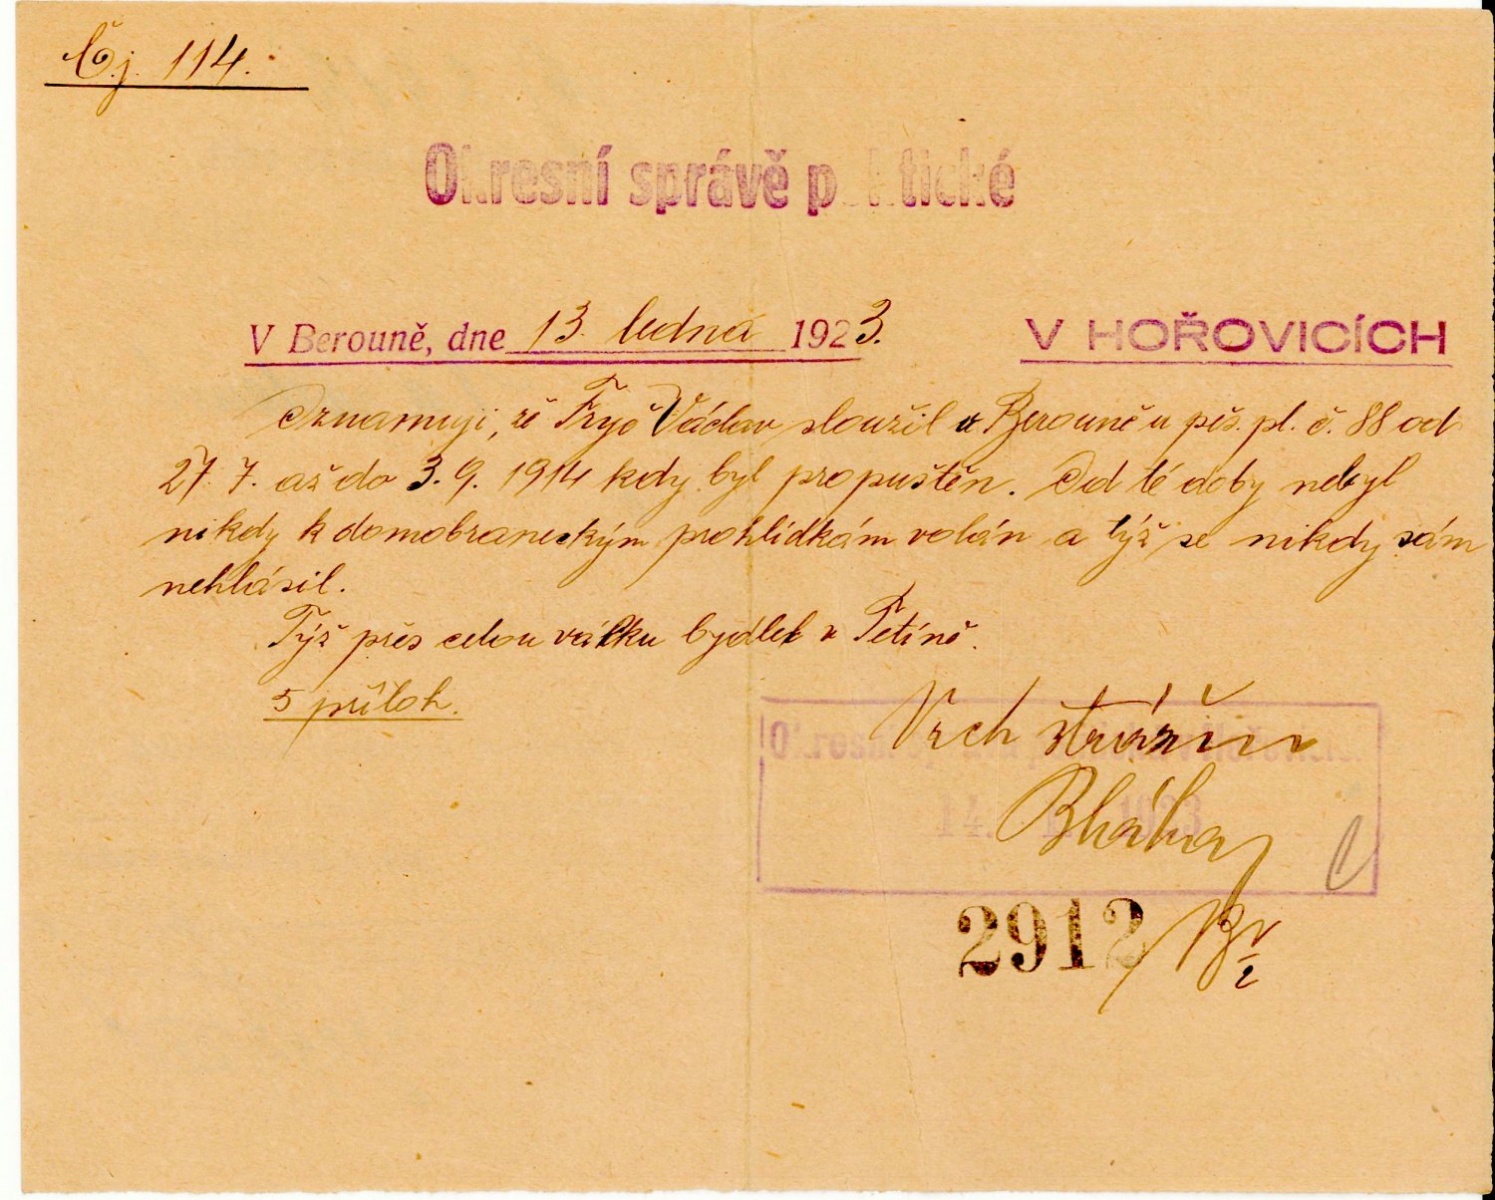 Čj. 114.
Okresní správě politické
V Berouně, dne 13. ledna 1923.
V HOŘOVICÍCH
Oznamuji, že Fryč Václav sloužil v Berouně u pěš. pl. č. 88 od
27. 7. až do 3. 9. 1914 kdy byl propuštěn. Od té doby nebyl
nikdy k domobraneckým prohlídkám volán a týž se nikdy sám
nehlásil.
Týž přes celou válku bydlel v Tetíně.
5 příloh.
Okresní správa politická v Hořovicích
14. 1923
Vrch strážm
Bláha
2912